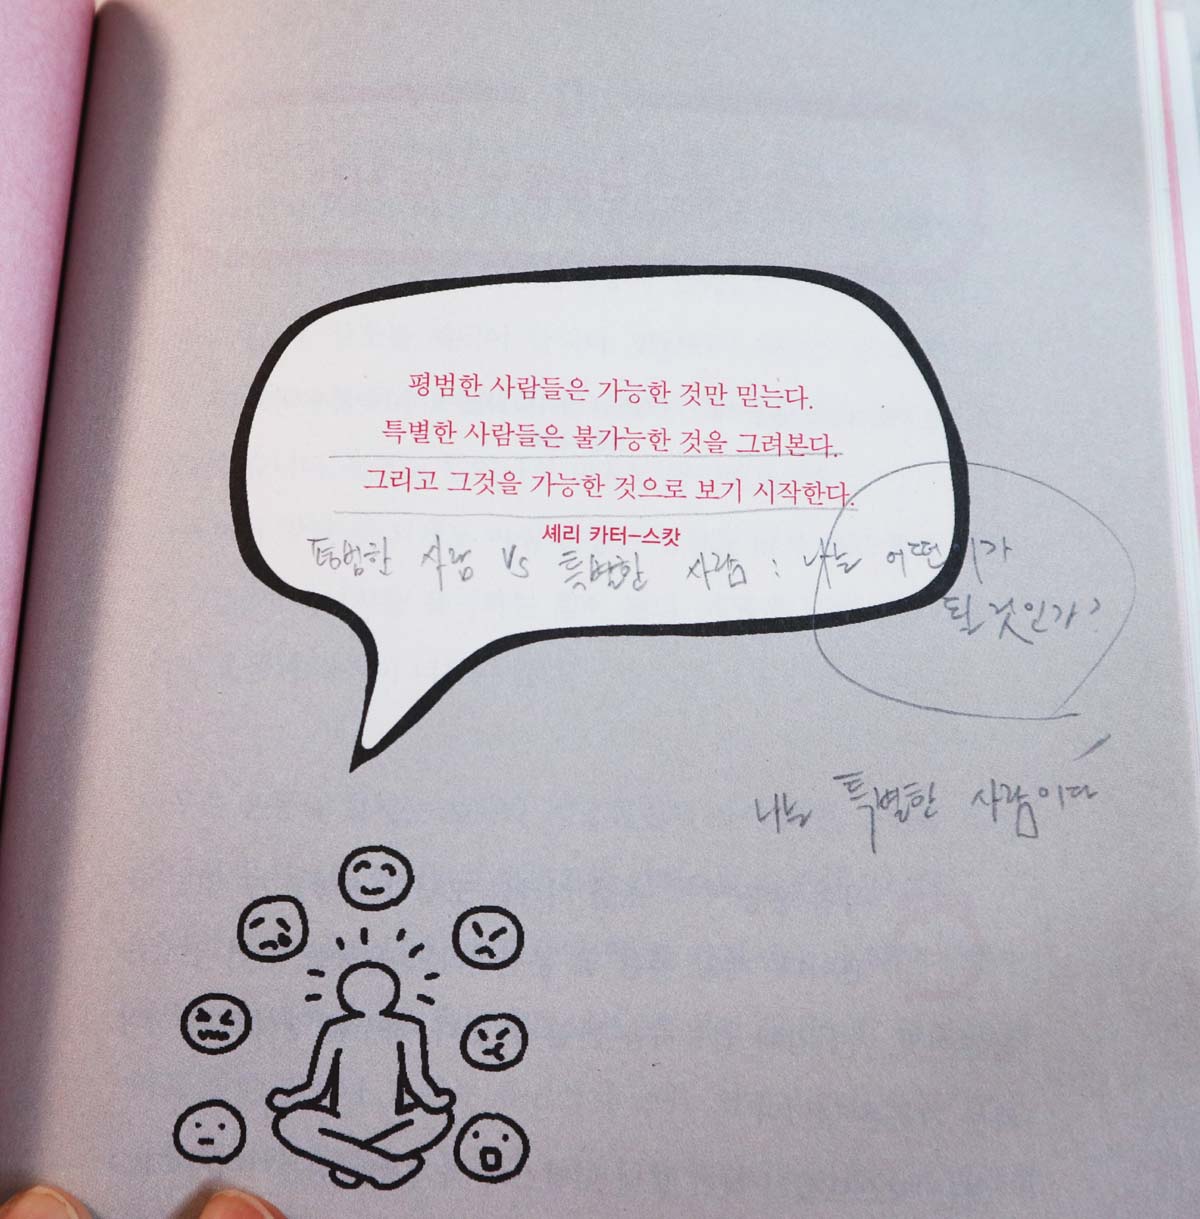 평범한 사람들은 가능한 것만 믿는다.
특별한 사람들은 불가능한 것을 그려본다.
그리고 그것을 가능한 것으로 보기 시작한다.
셰리 카터-스캇
평범한 사람 vs 특별한 사람 : 나는 어떤 이가
될 것인가?
나는 특별한 사람이다